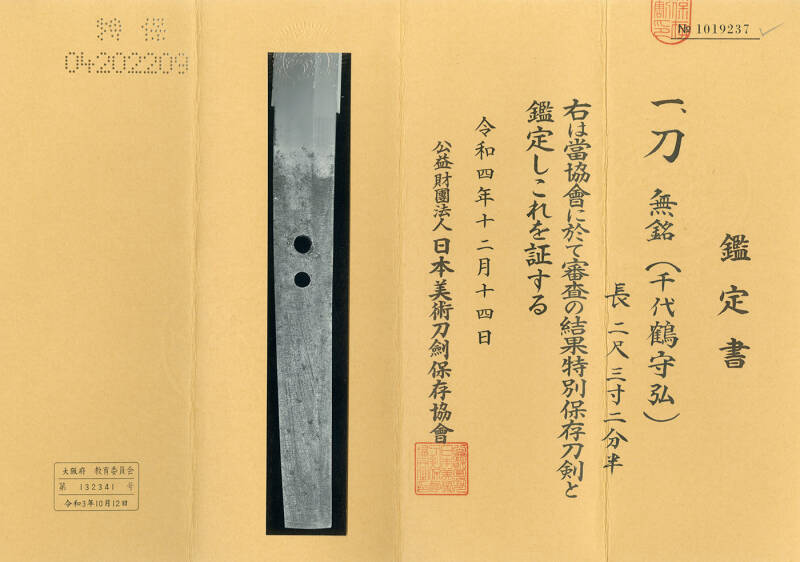 № 1019237
鑑定書
一、刀 無銘(千代鶴守弘)
長 二尺三寸二分半
右は當協會に於て審査の結果特別保存刀剣と
鑑定しこれを証する
令和四年十二月十四日
公益財團法人 日本美術刀劍保存協會
04202209
大阪府 教育委員会
第 132341 号
令和3年10月12日